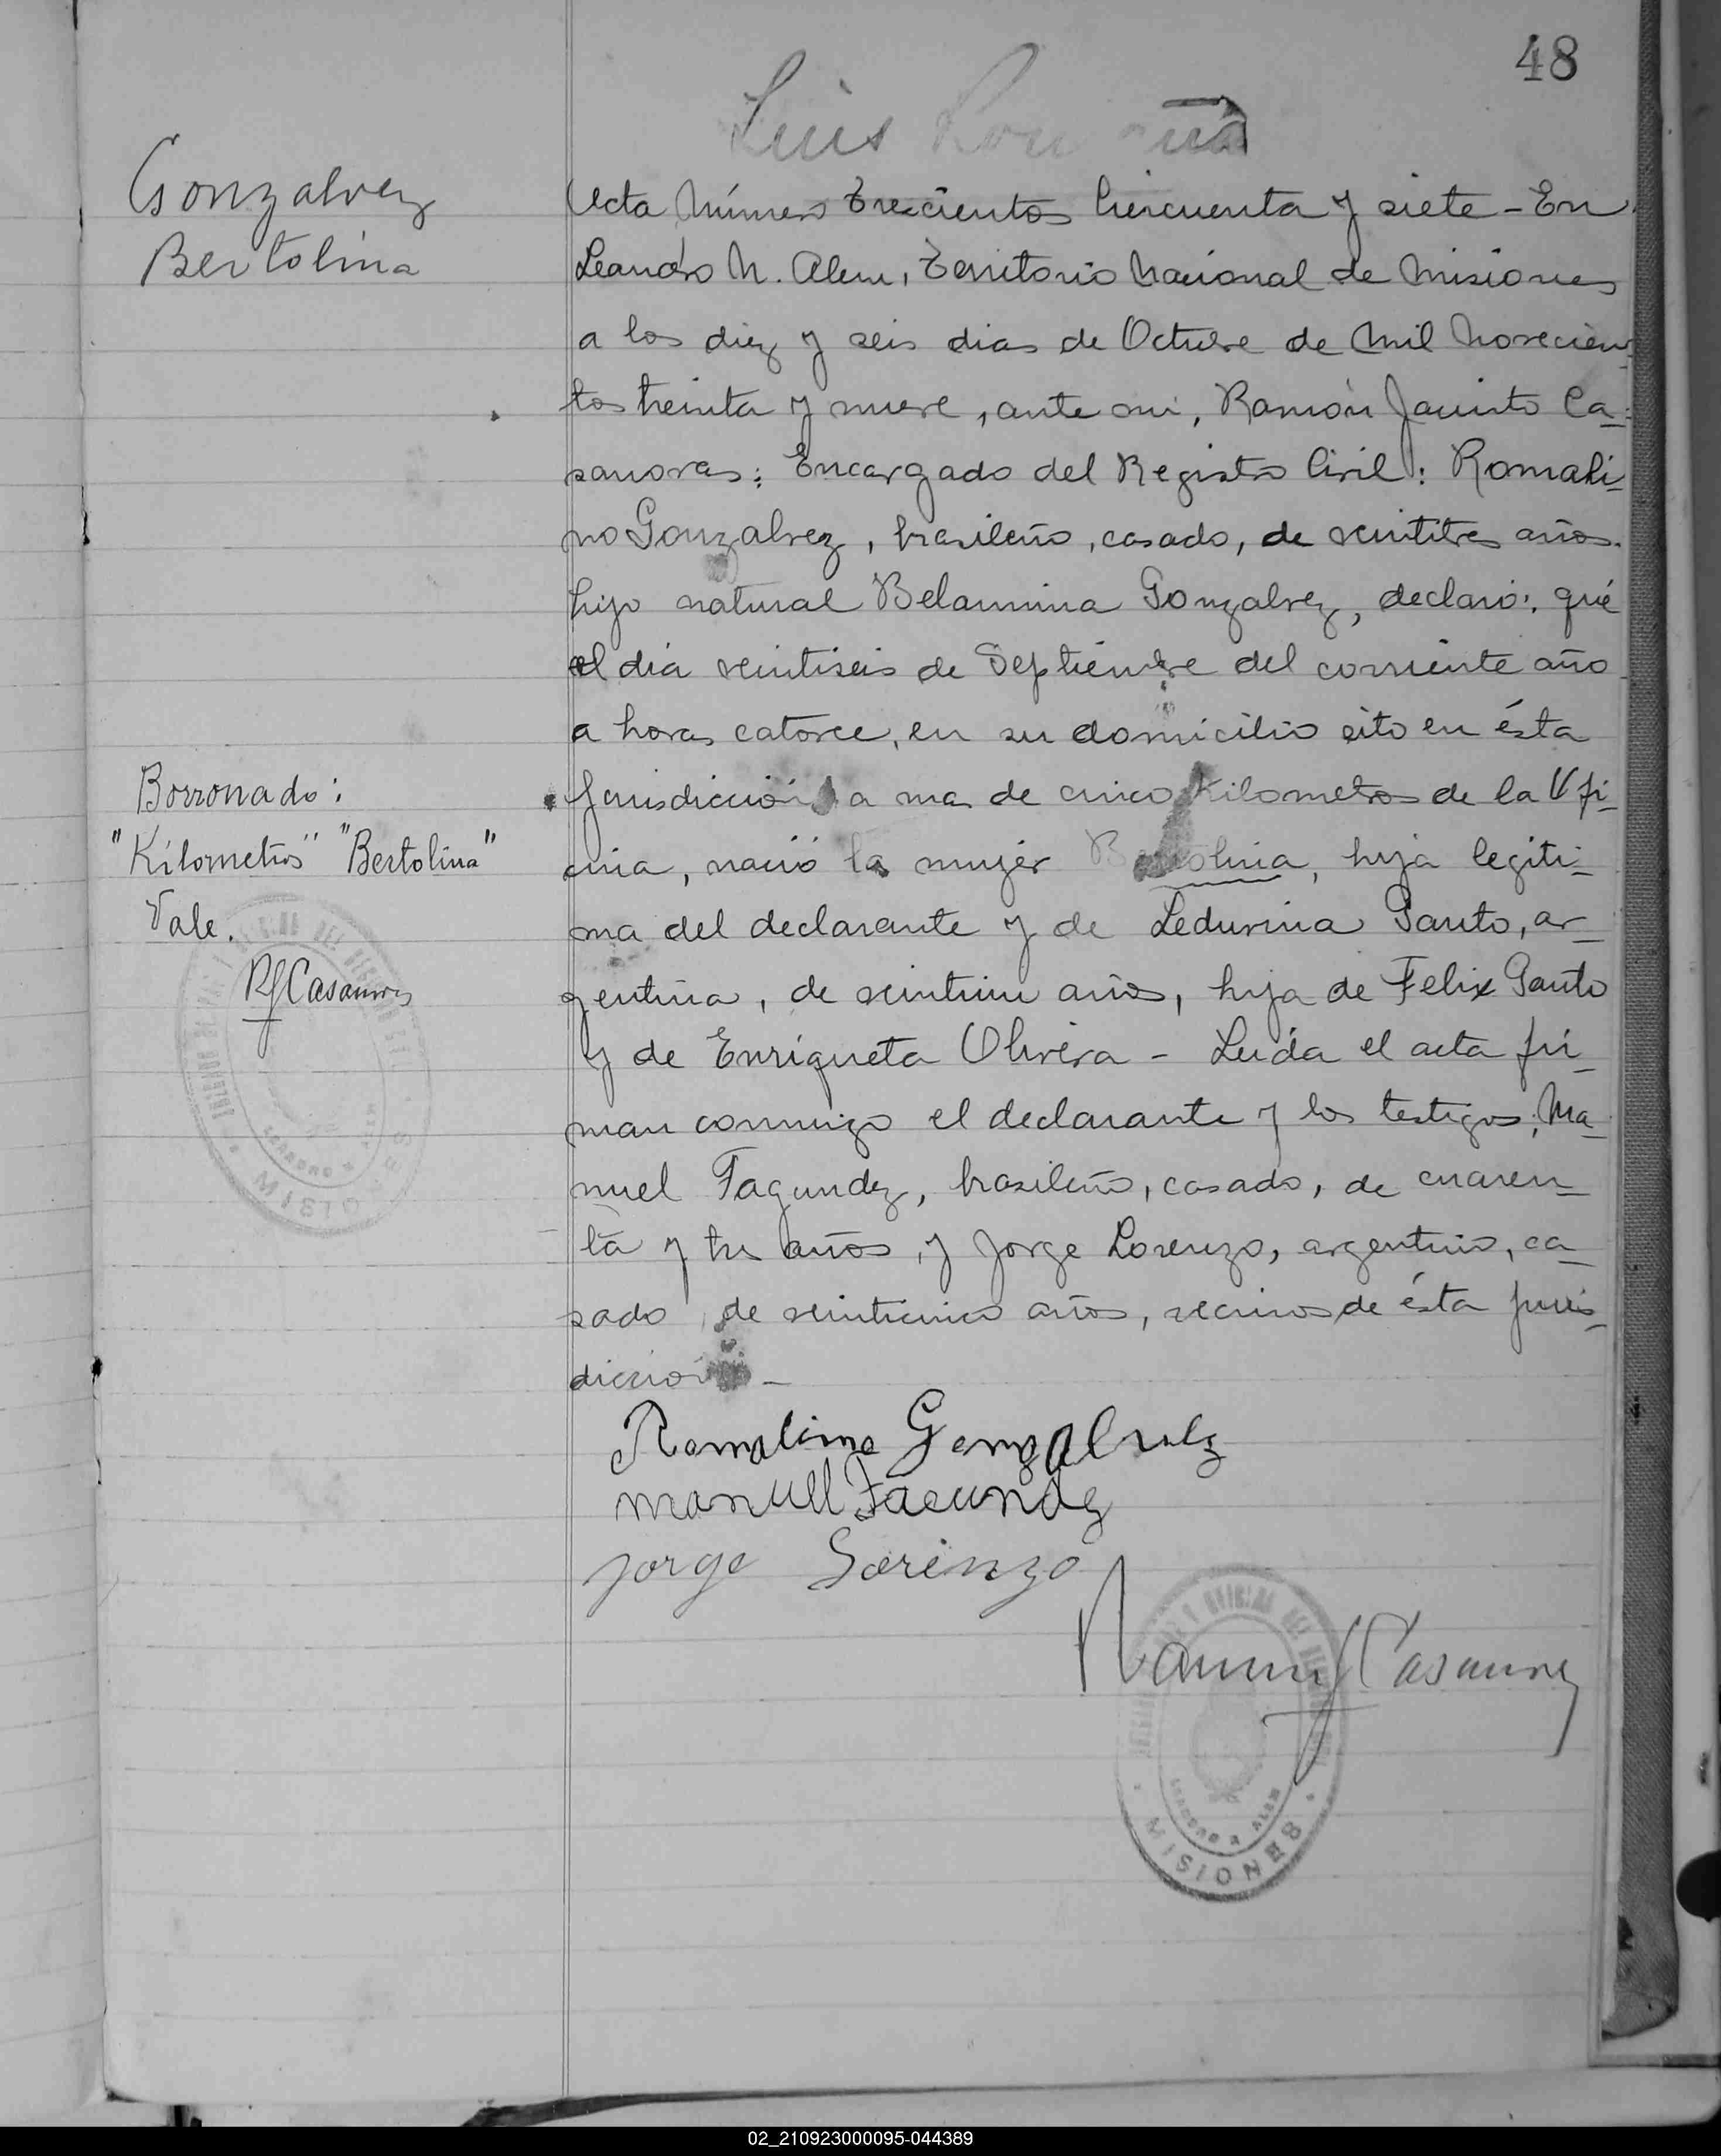 48
Luis
Gonzalvez
Bertolina
Acta Número Trescientos Cincuenta y siete - En
Leandro N. Alem, Territorio Nacional de Misiones
a los diez y seis dias de Octubre de Mil Novecien_
tos treinta y nueve, ante mi, Ramón Jacinto Ca=
sanovas: Encargado del Registro Civil: Romali_
no Gonzalvez, brasileño, casado, de veintitres años.
hijo natural Belarmina Gonzalvez, declaró: qué
el día veintiseis de Septiembre del corriente año
a horas catorce, en su domicilio sito en ésta
Jurisdicción a mas de cinco Kilometros de la Ofi_
cina, nació la mujer Bertolina, hija legiti_
ma del declarante y de Ledurina Santo, ar_
gentina, de veintiun años, hija de Felix Santo
y de Enriqueta Olivera - Leida el acta fir_
man conmigo el declarante y los testigos: Ma_
nuel Fagundez, brasileño, casado, de cuaren_
ta y tres años, y Jorge Lorenzo, argentino, ca_
sado, de veinticinco años, vecinos de ésta juris_
dicción -
Borronado:
"Kilometros" "Bertolina"
Vale.
RJCasanovas
Romalino Gonzalvez
manuel Facundez
Jorge Lorenzo
Ramon J Casanovas
MISIONES
MISIONES
02_210923000095-044389